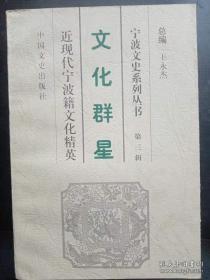 总编 王永杰
宁波文史系列丛书 第三辑
文化群星
近现代宁波籍文化精英
中国文史出版社